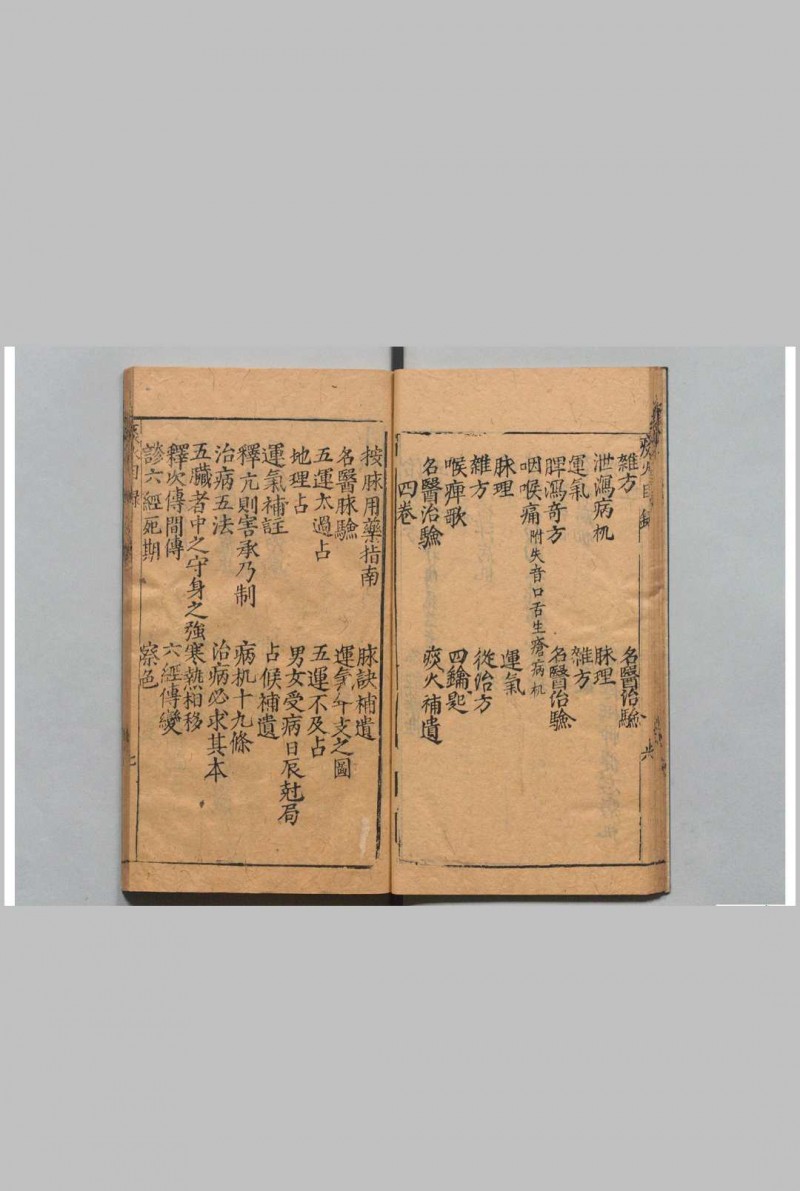 痰火目錄
六
雜方 名醫治驗
泄瀉病机 脉理
運氣 雜方
脾瀉奇方 名醫治驗
咽喉痛附失音口舌生瘡病机
脉理 運氣
雜方 從治方
喉痺歌 四鑰匙
名醫治驗 痰火補遺
四卷
按脉用藥指南 脉訣補遺
名醫脉驗 運氣干支之圖
五運太過占 五運不及占
地理占 男女受病日辰尅局
運氣補註 占候補遺
釋亢則害承乃制 病机十九條
治病五法 治病必求其本
五臟者中之守身之強 寒熱相移
釋次傳間傳 六經傳變
診六經死期 察色
目錄
七